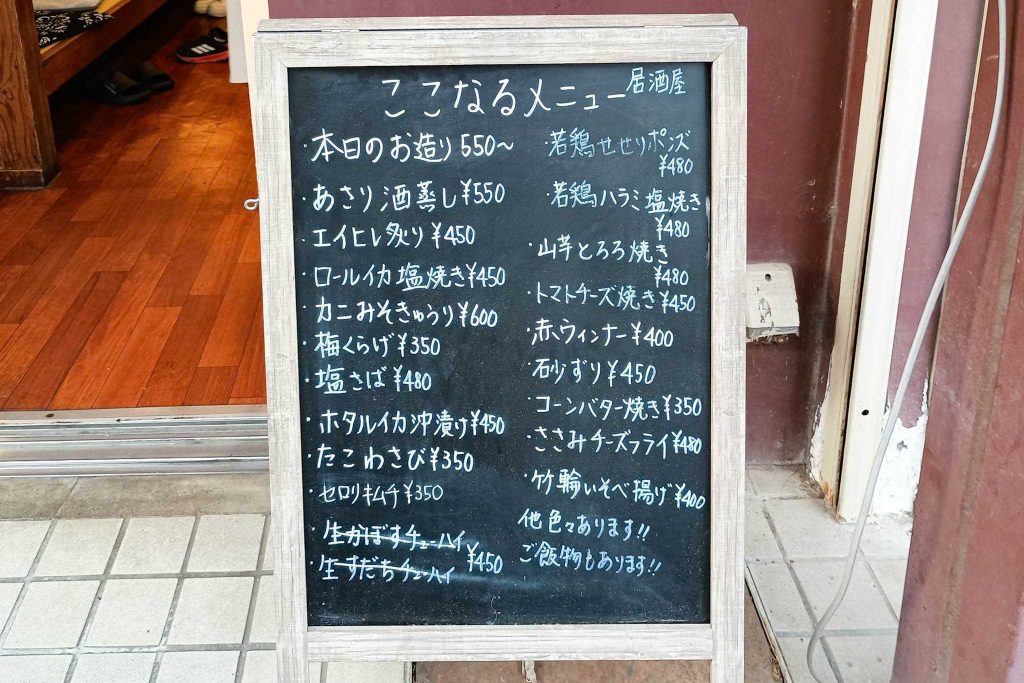 ここなるメニュー 居酒屋
・本日のお造り 550〜
・あさり酒蒸し ¥550
・エイヒレ炙り ¥450
・ロールイカ塩焼き ¥450
・カニみそきゅうり ¥600
・梅くらげ ¥350
・塩さば ¥480
・ホタルイカ沖漬け ¥450
・たこわさび ¥350
・セロリキムチ ¥350
・生かぼすチューハイ
・生すだちチューハイ ¥450
・若鶏せせりポンズ
¥480
・若鶏ハラミ塩焼き
¥480
・山芋とろろ焼き
¥480
・トマトチーズ焼き ¥450
・赤ウィンナー ¥400
・砂ずり ¥450
・コーンバター焼き ¥350
・ささみチーズフライ ¥480
・竹輪いそべ揚げ ¥400
他色々あります!!
ご飯物もあります!!